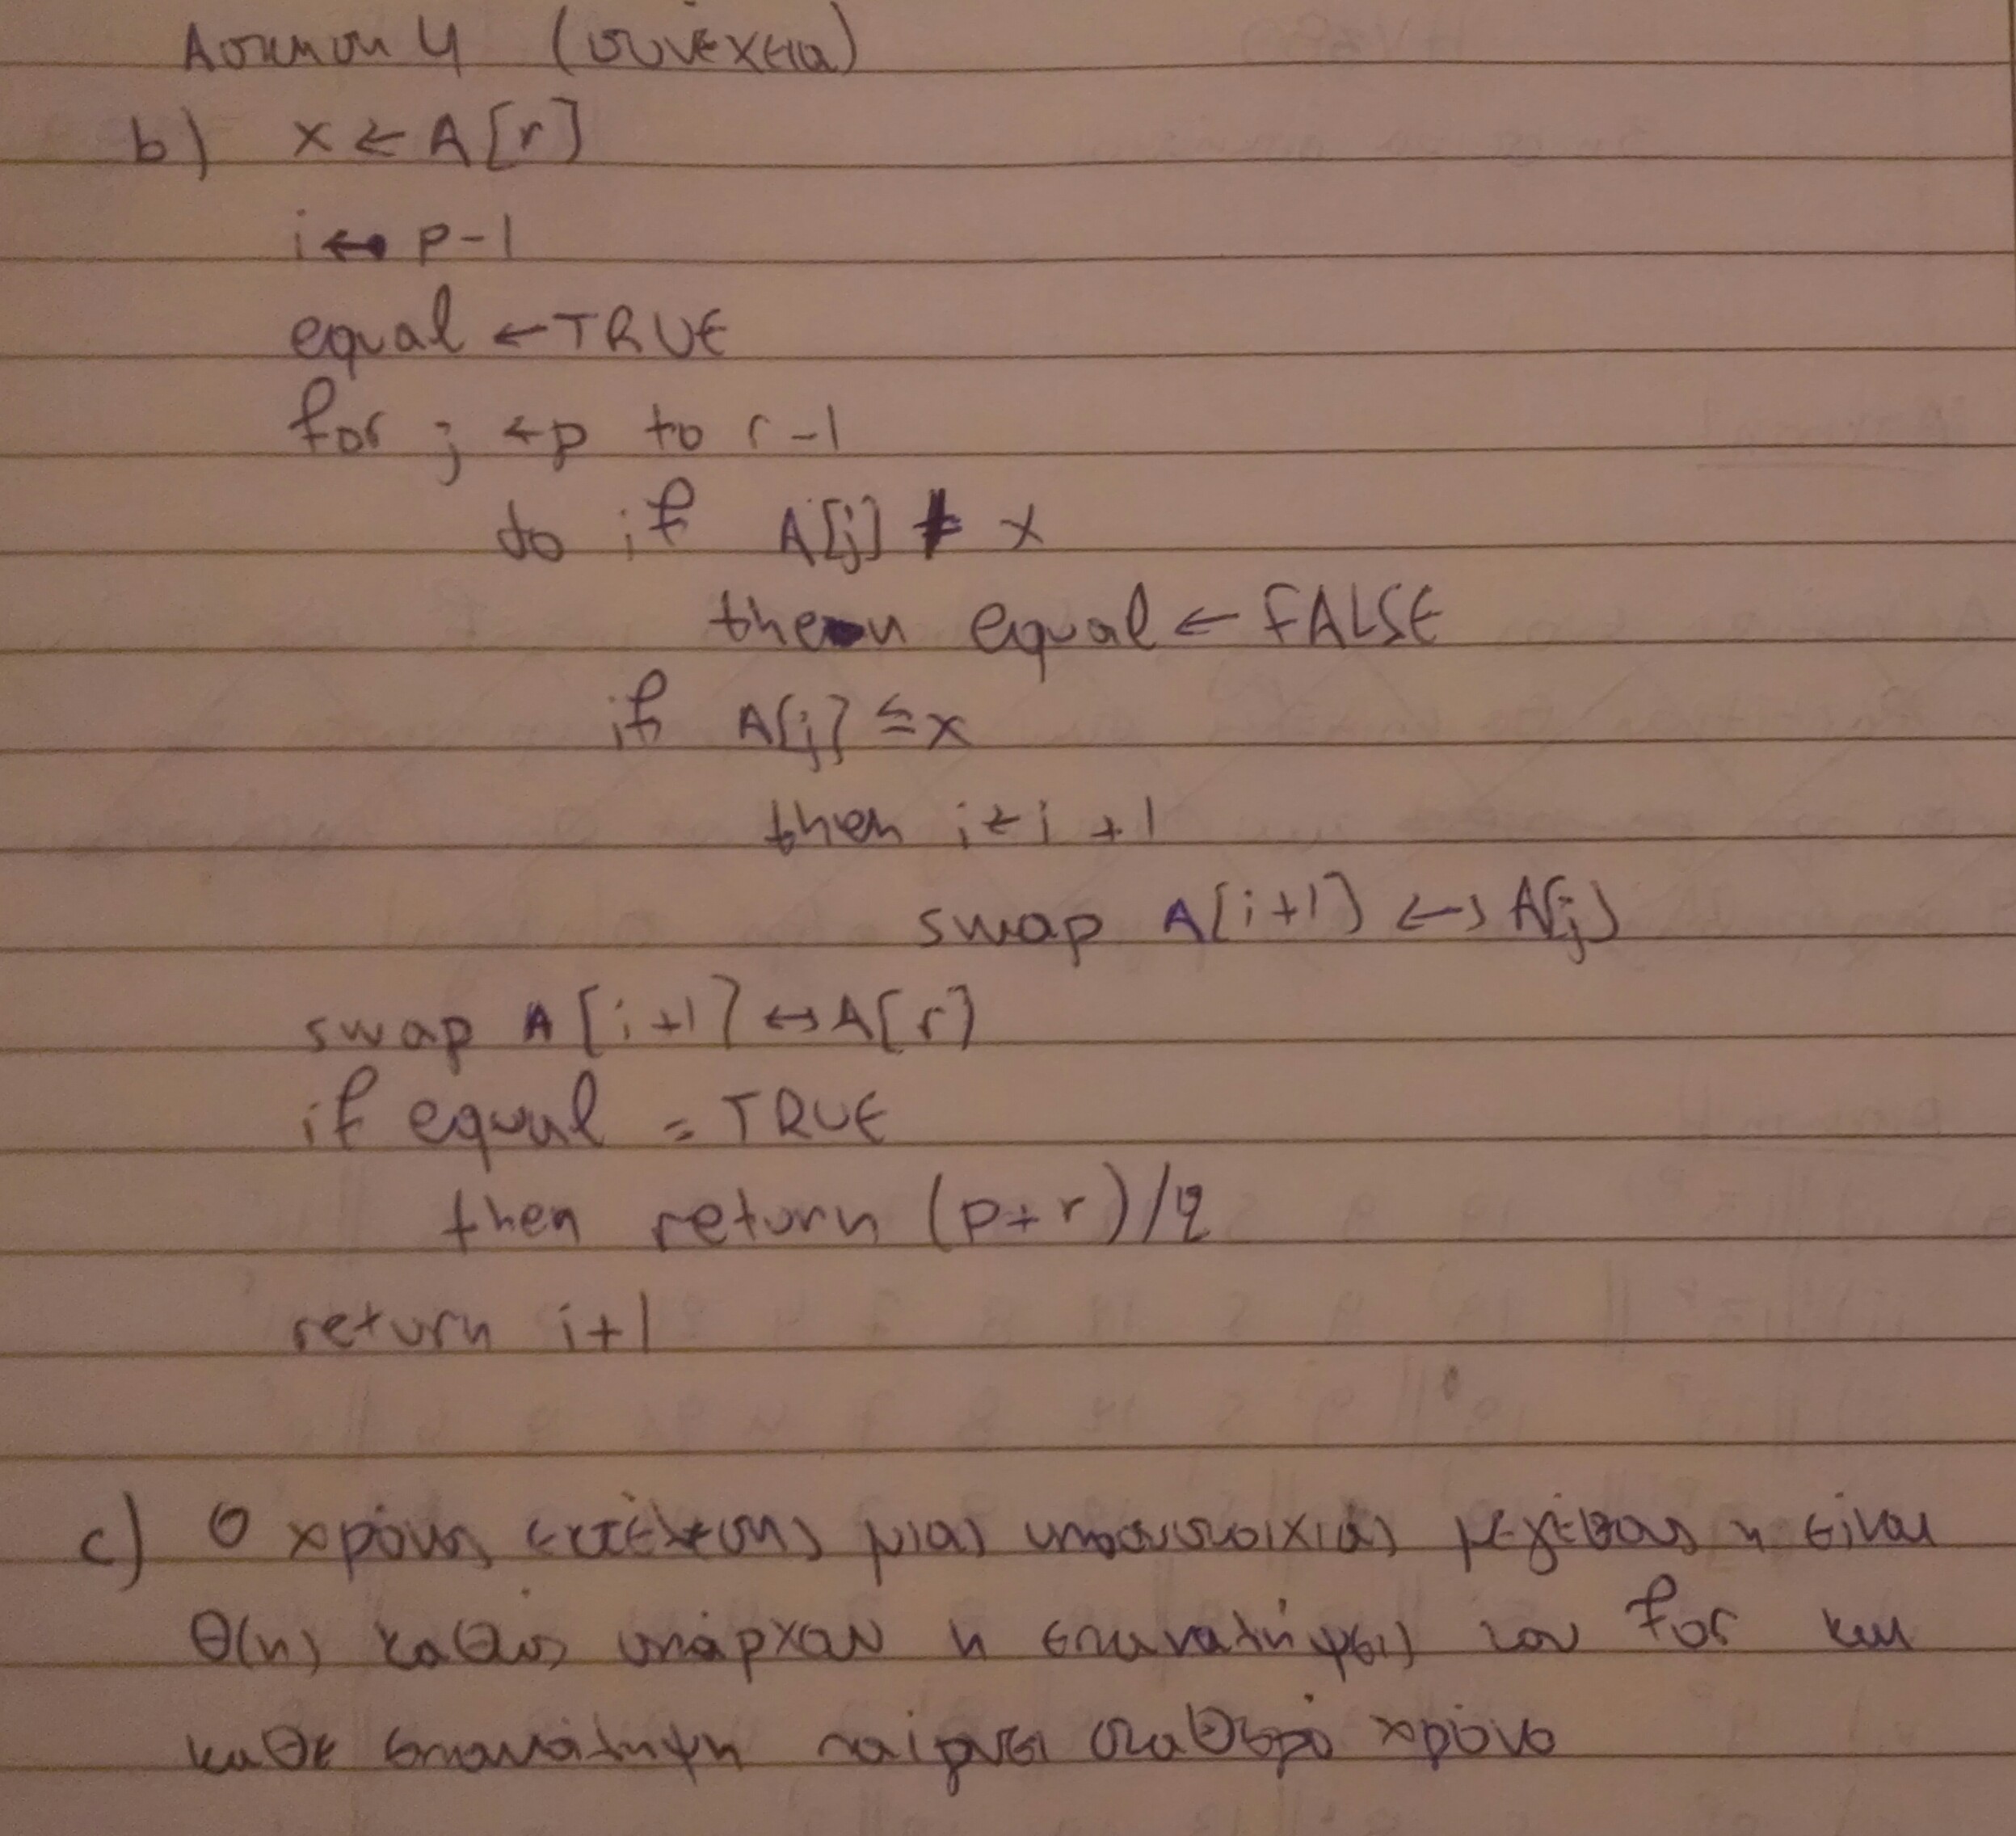 Άσκηση 4 (συνέχεια)
b) x ← A[r]
i ← p-1
equal ← TRUE
for j ← p to r-1
do if A[j] ≠ x
then equal ← FALSE
if A[j] ≤ x
then i ← i +1
swap A[i+1] ↔ A[j]
swap A[i+1] ↔ A[r]
if equal = TRUE
then return (p+r)/2
return i+1
c) Ο χρόνος εκτέλεσης μιας υποακολουθίας μεγέθους n είναι
Θ(n) καθώς υπάρχουν n επαναλήψεις του for και
καθε επανάληψη παίρνει σταθερό χρόνο